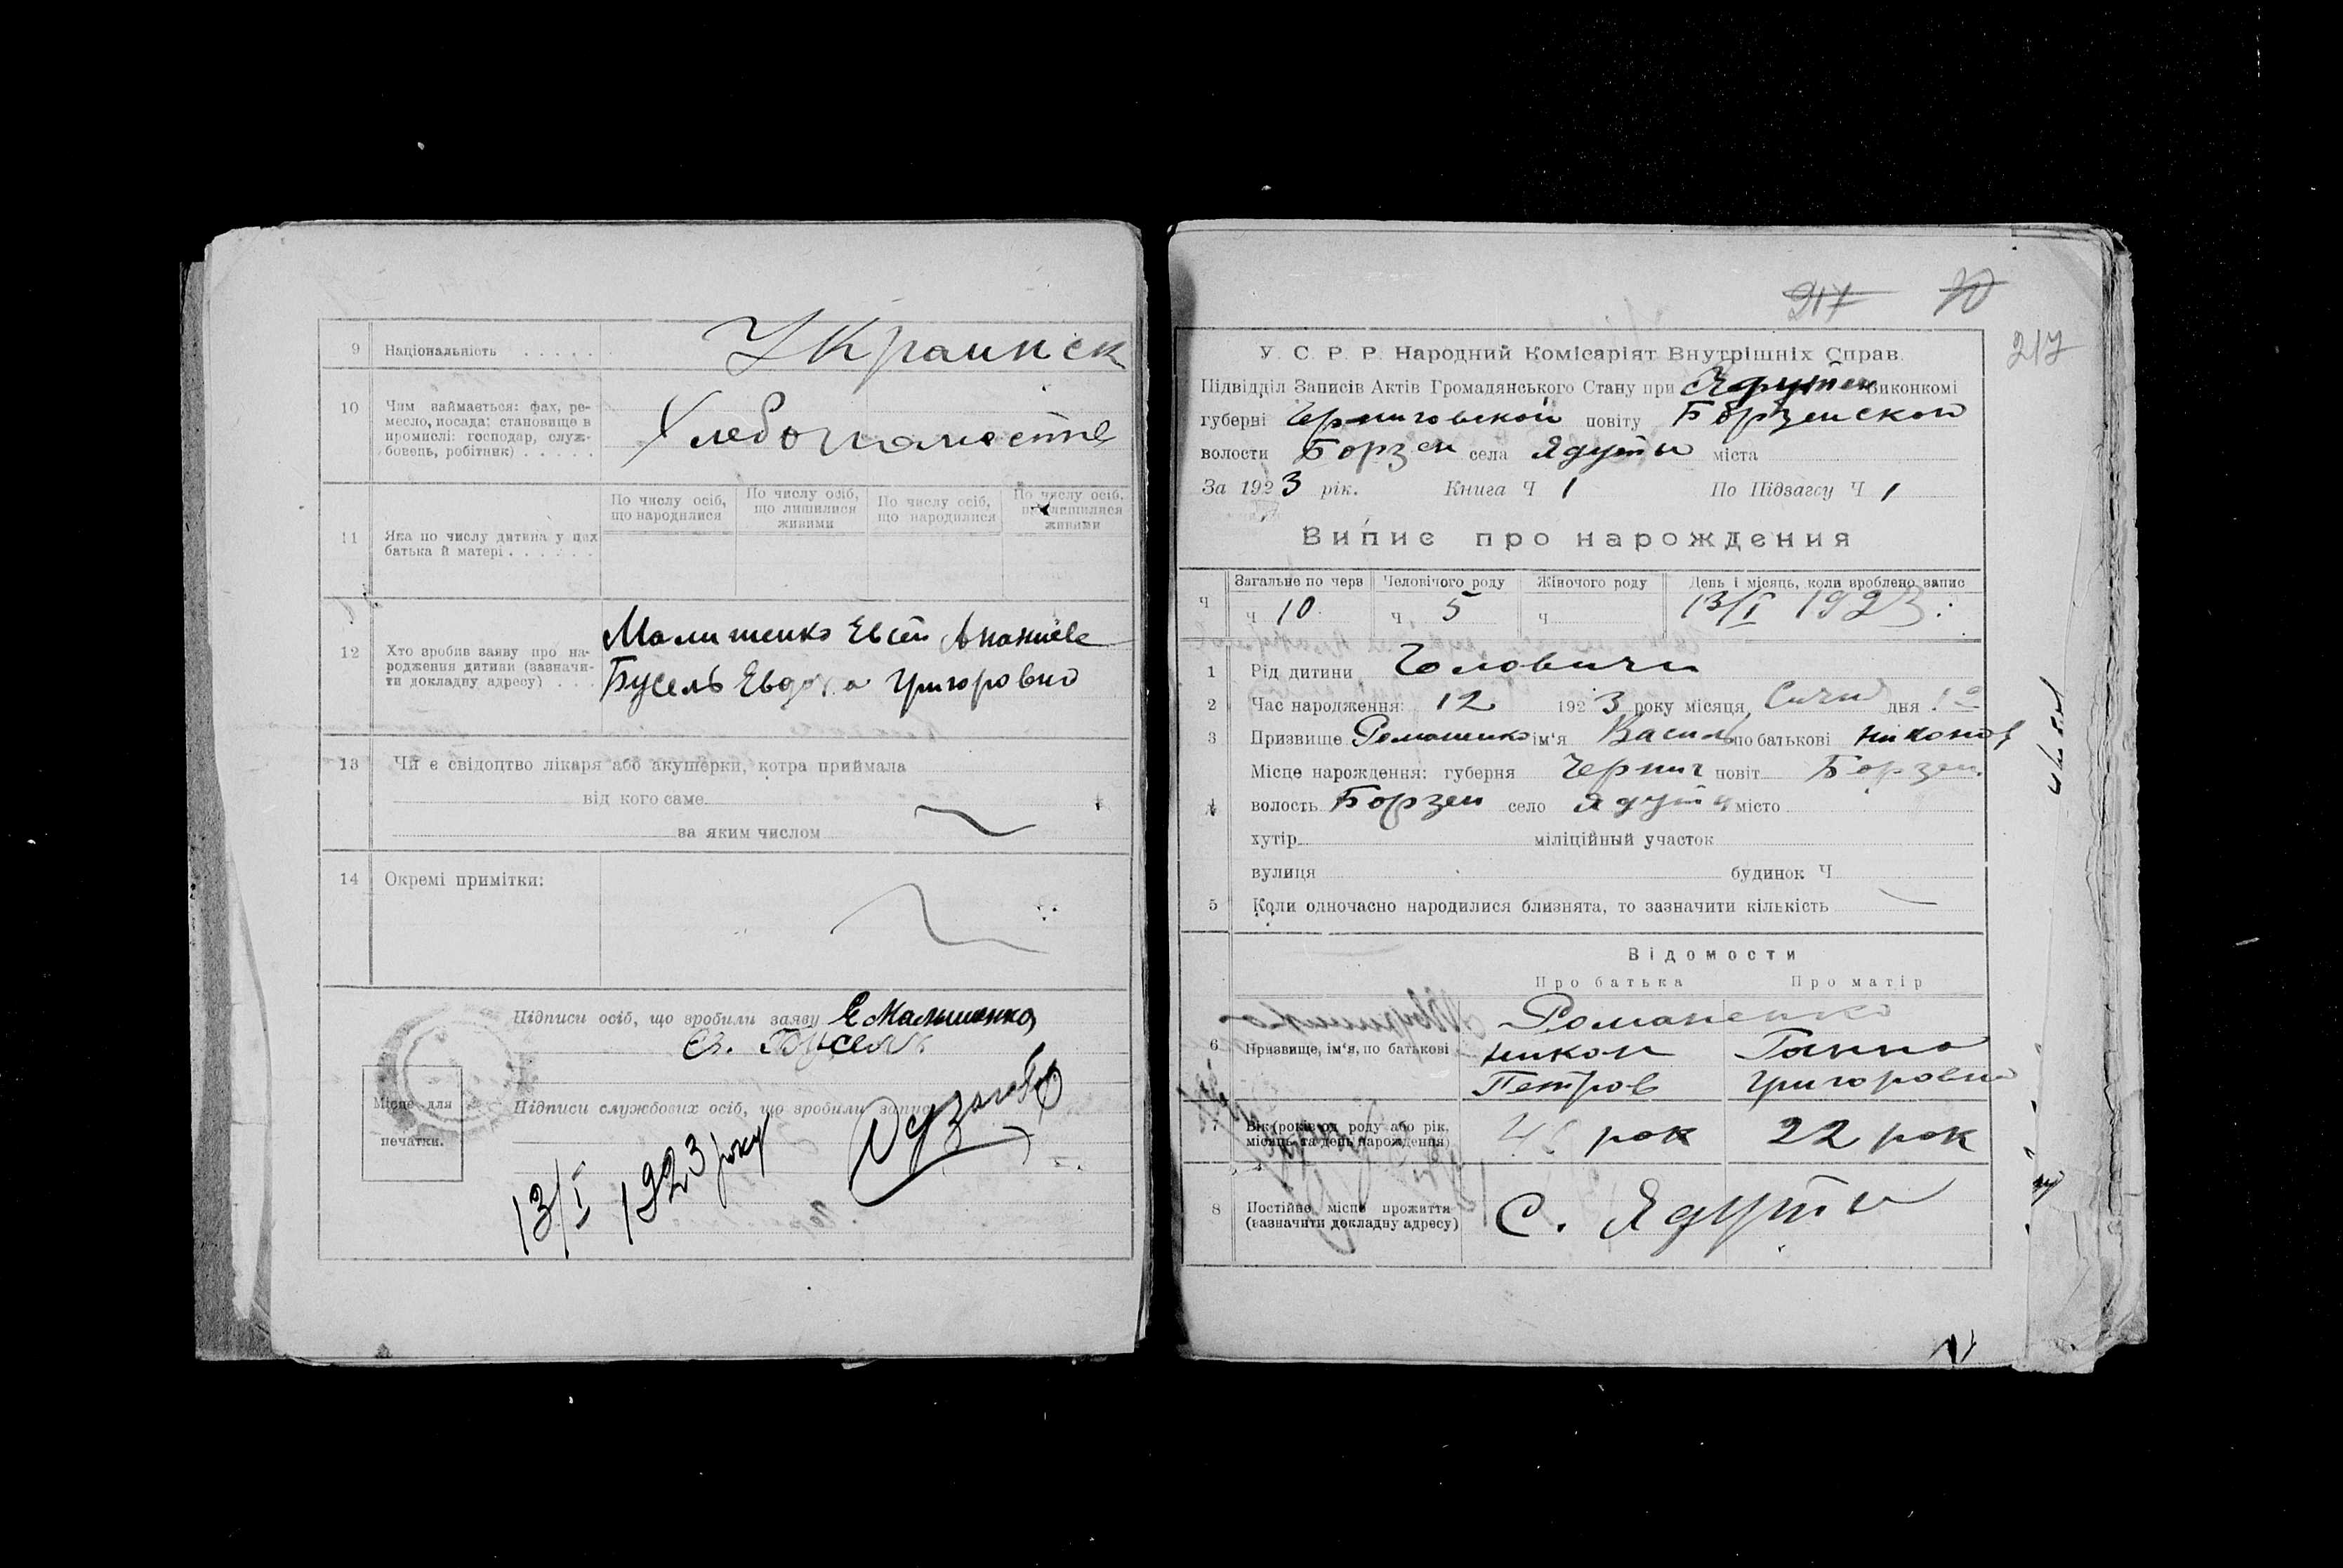 9 Національність . . . . . Украинск
10 Чим займається: фах, ре-
месло, посада: становище в
промислі: господар, служ-
бовець, робітник) . . . . .
Хлебопашеств
11 Яка по числу дитина у цих
батька й матері . . . . . .
По числу осіб, що народилися
По числу осіб, що лишилися живими
По числу осіб, що народилися
По числу осіб, що лишилися живими
12 Хто зробив заяву про на-
родження дитини (зазначи-
ти докладну адресу) . . .
Малишенко Евсей Ананиев
Бусель Григоровна
13 Чи є свідоцтво лікаря або акушерки, котра приймала
від кого саме
за яким числом
14 Окремі примітки:
Підписи осіб, що зробили заяву Е Малишенко
Бусель
Підписи службових осіб, що зробили запис
Місце для
печатки.
13/I 1923 року
217 70
217
У. С. Р. Р. Народний Комісаріят Внутрішніх Справ.
Підвідділ Записів Актів Громадянського Стану при Ядутин Виконкомі
губерні Черниговской повіту Борзенской
волости Борзен села Ядуты міста
За 1923 рік. Книга Ч 1 По Підзагсу Ч 1
Випис про нарождения
Ч Загальне по черв Человічого роду Жіночого роду День і місяць, коли вроблено запис
ч 10 ч 5 ч 13/I 1923
1 Рід дитини Чоловичи
2 Час народження: 12 1923 року місяця Січня дня
3 Призвище Романенко ім'я Василь по батькові Никонов
4 Місце нарождення: губерня Черниг повіт Борзен
волость Борзен село Ядуты місто
хутір міліційный участок
вулиця будинок Ч
5 Коли одночасно народилися близнята, то зазначити кількість
Відомости
Про батька Про матір
Романенко
6 Призвище, ім'я, по батькові Никон Ганна
Петров Григоровна
7 Вік (років од роду або рік,
місяць та день нарождення)
рок 22 рок
8 Постійне місце прожиття
(зазначити докладну адресу)
С. Ядуты